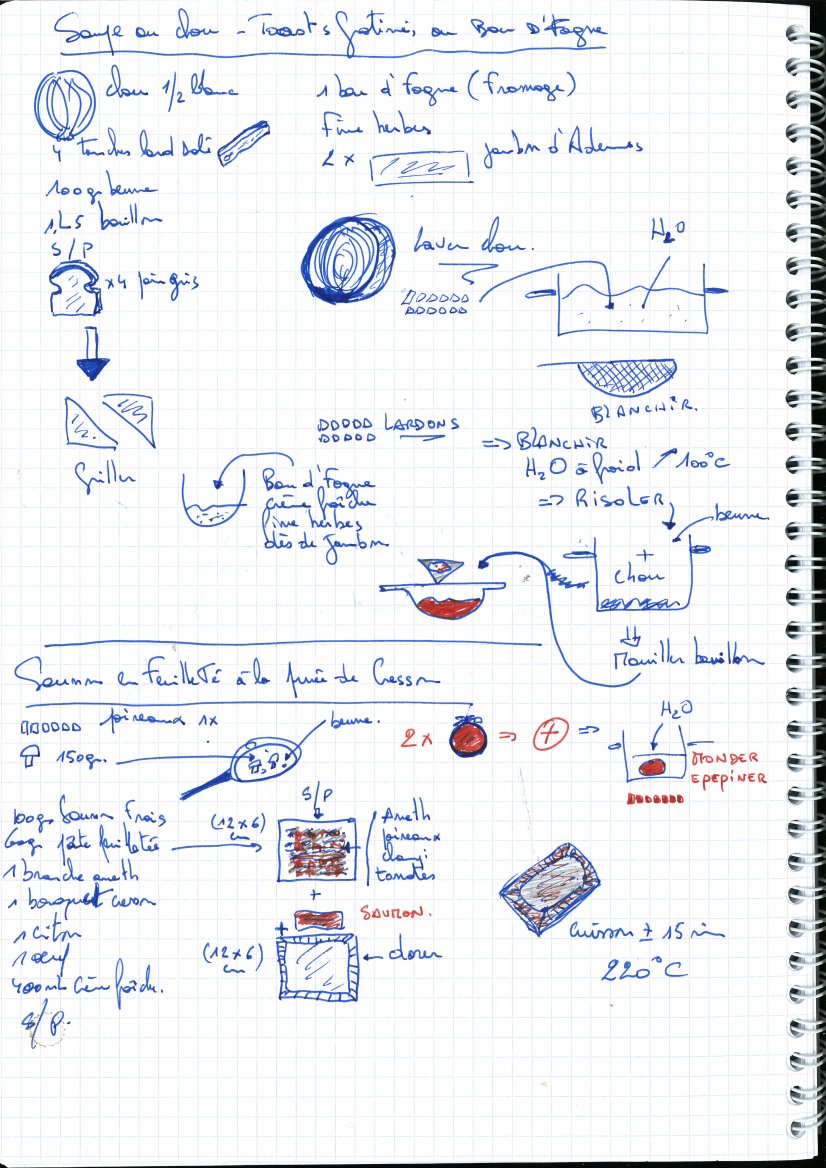 Soupe au chou - Toasts gratinés au Bou D'Fagne
chou 1/2 blanc
4 tranches lard salé
100gr beurre
1,L5 bouillon
S/P
x4 pain gris
Griller
1 bou d'Fagne (Fromage)
Fine herbes
2 x jambon d'Ardennes
Laver chou.
H2O
BLANCHIR.
LARDONS
=> BLANCHIR
H2O à froid 100°C
=> RISOLER
beurre
Bou d'Fagne
crème fraîche
fine herbes
dés de Jambon
+
chou
Mouiller bouillon
Saumon en Feuilleté à la purée de Cresson
poireaux 1x
beurre.
150gr.
2x => + =>
H2O
MONDER
EPEPINER
100gr Saumon Frais
60gr Pâte feuilletée
1 branche aneth
1 bouquet cresson
1 citron
1 oeuf
400ml Crème fraîche.
S/P.
S/P
(12x6)
cm
Aneth
poireaux
tomates
+
SAUMON.
+
(12x6)
cm
dorer
Cuisson ± 15 min
220°C